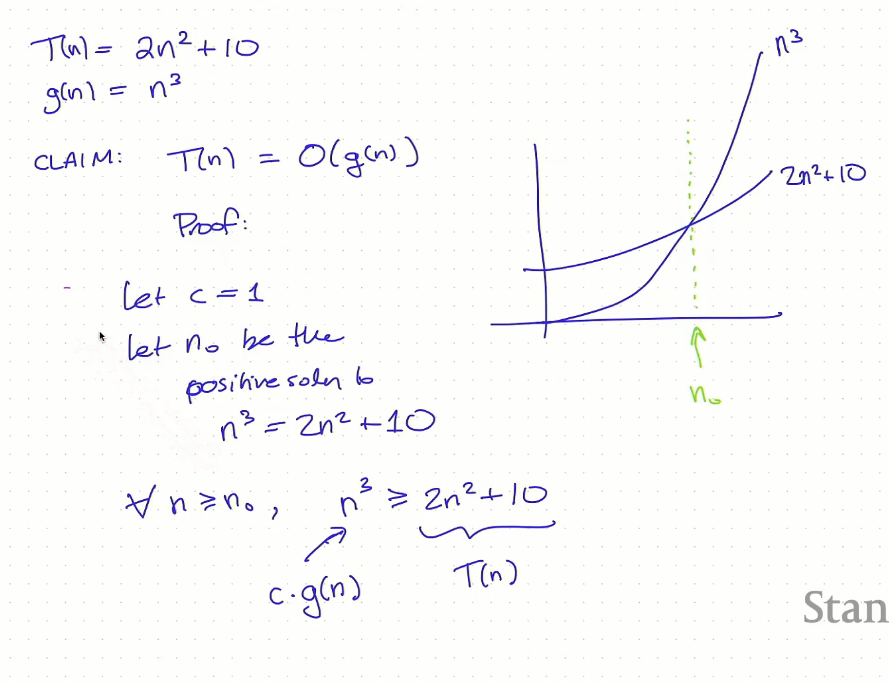 T(n) = 2n² + 10
g(n) = n³
CLAIM: T(n) = O(g(n))
Proof:
Let c = 1
Let n₀ be the
positive soln to
n³ = 2n² + 10
∀ n ≥ n₀, n³ ≥ 2n² + 10
c·g(n)
T(n)
n³
2n² + 10
n₀
Stan